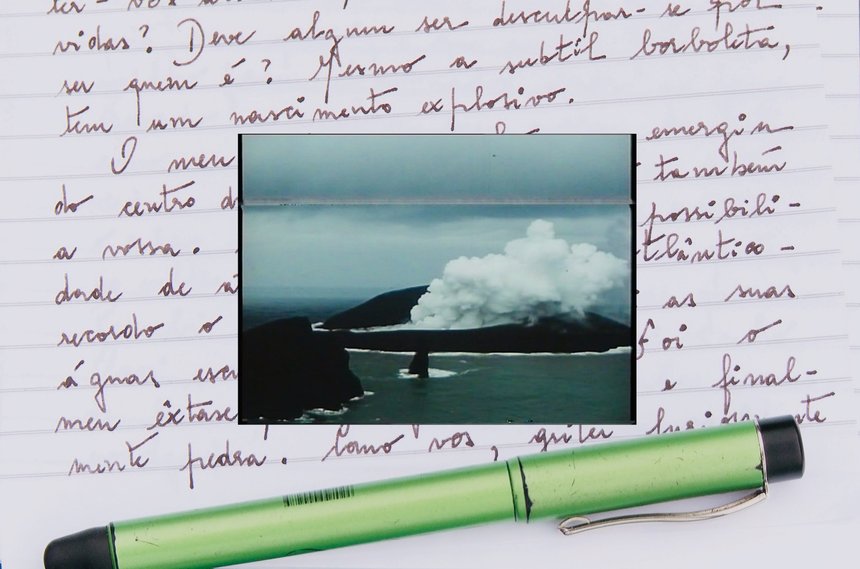 vidas? Deve alguem ser desculpar-se por
ser quem é? Mesmo a subtil borboleta,
tem um nascimento explosivo.
O meu emergiu
do centro também
a vossa. possibili-
dade de tlântico -
recordo o as suas
águas Foi o
meu êxtase e final-
mente pedra. Como vós, gritei